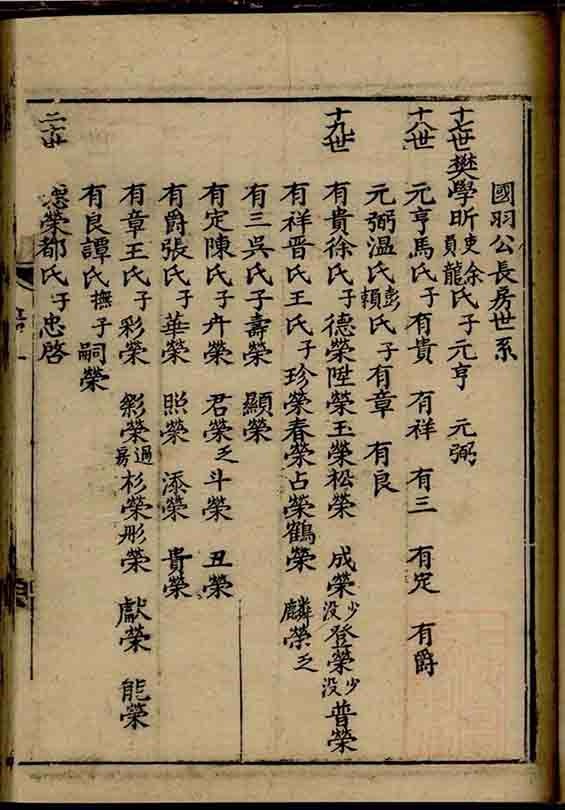 國羽公長房世系
十七世 樊學昕吏員 余龍氏子元亨 元弼
十八世 元亨馬氏子有貴 有祥 有三 有定 有爵
元弼温氏彭賴氏子有章 有良
十九世 有貴徐氏子德榮陞榮玉榮松榮 成榮少没登榮少没普榮
有祥晋氏王氏子珍榮春榮占榮鶴榮 麟榮乏
有三吳氏子壽榮 顯榮
有定陳氏子卉榮 君榮乏斗榮 丑榮
有爵張氏子華榮 照榮 添榮 貴榮
有章王氏子彩榮 彩榮過房杉榮彤榮 獻榮 能榮
有良譚氏撫子嗣榮
二十世 德榮都氏子忠啓